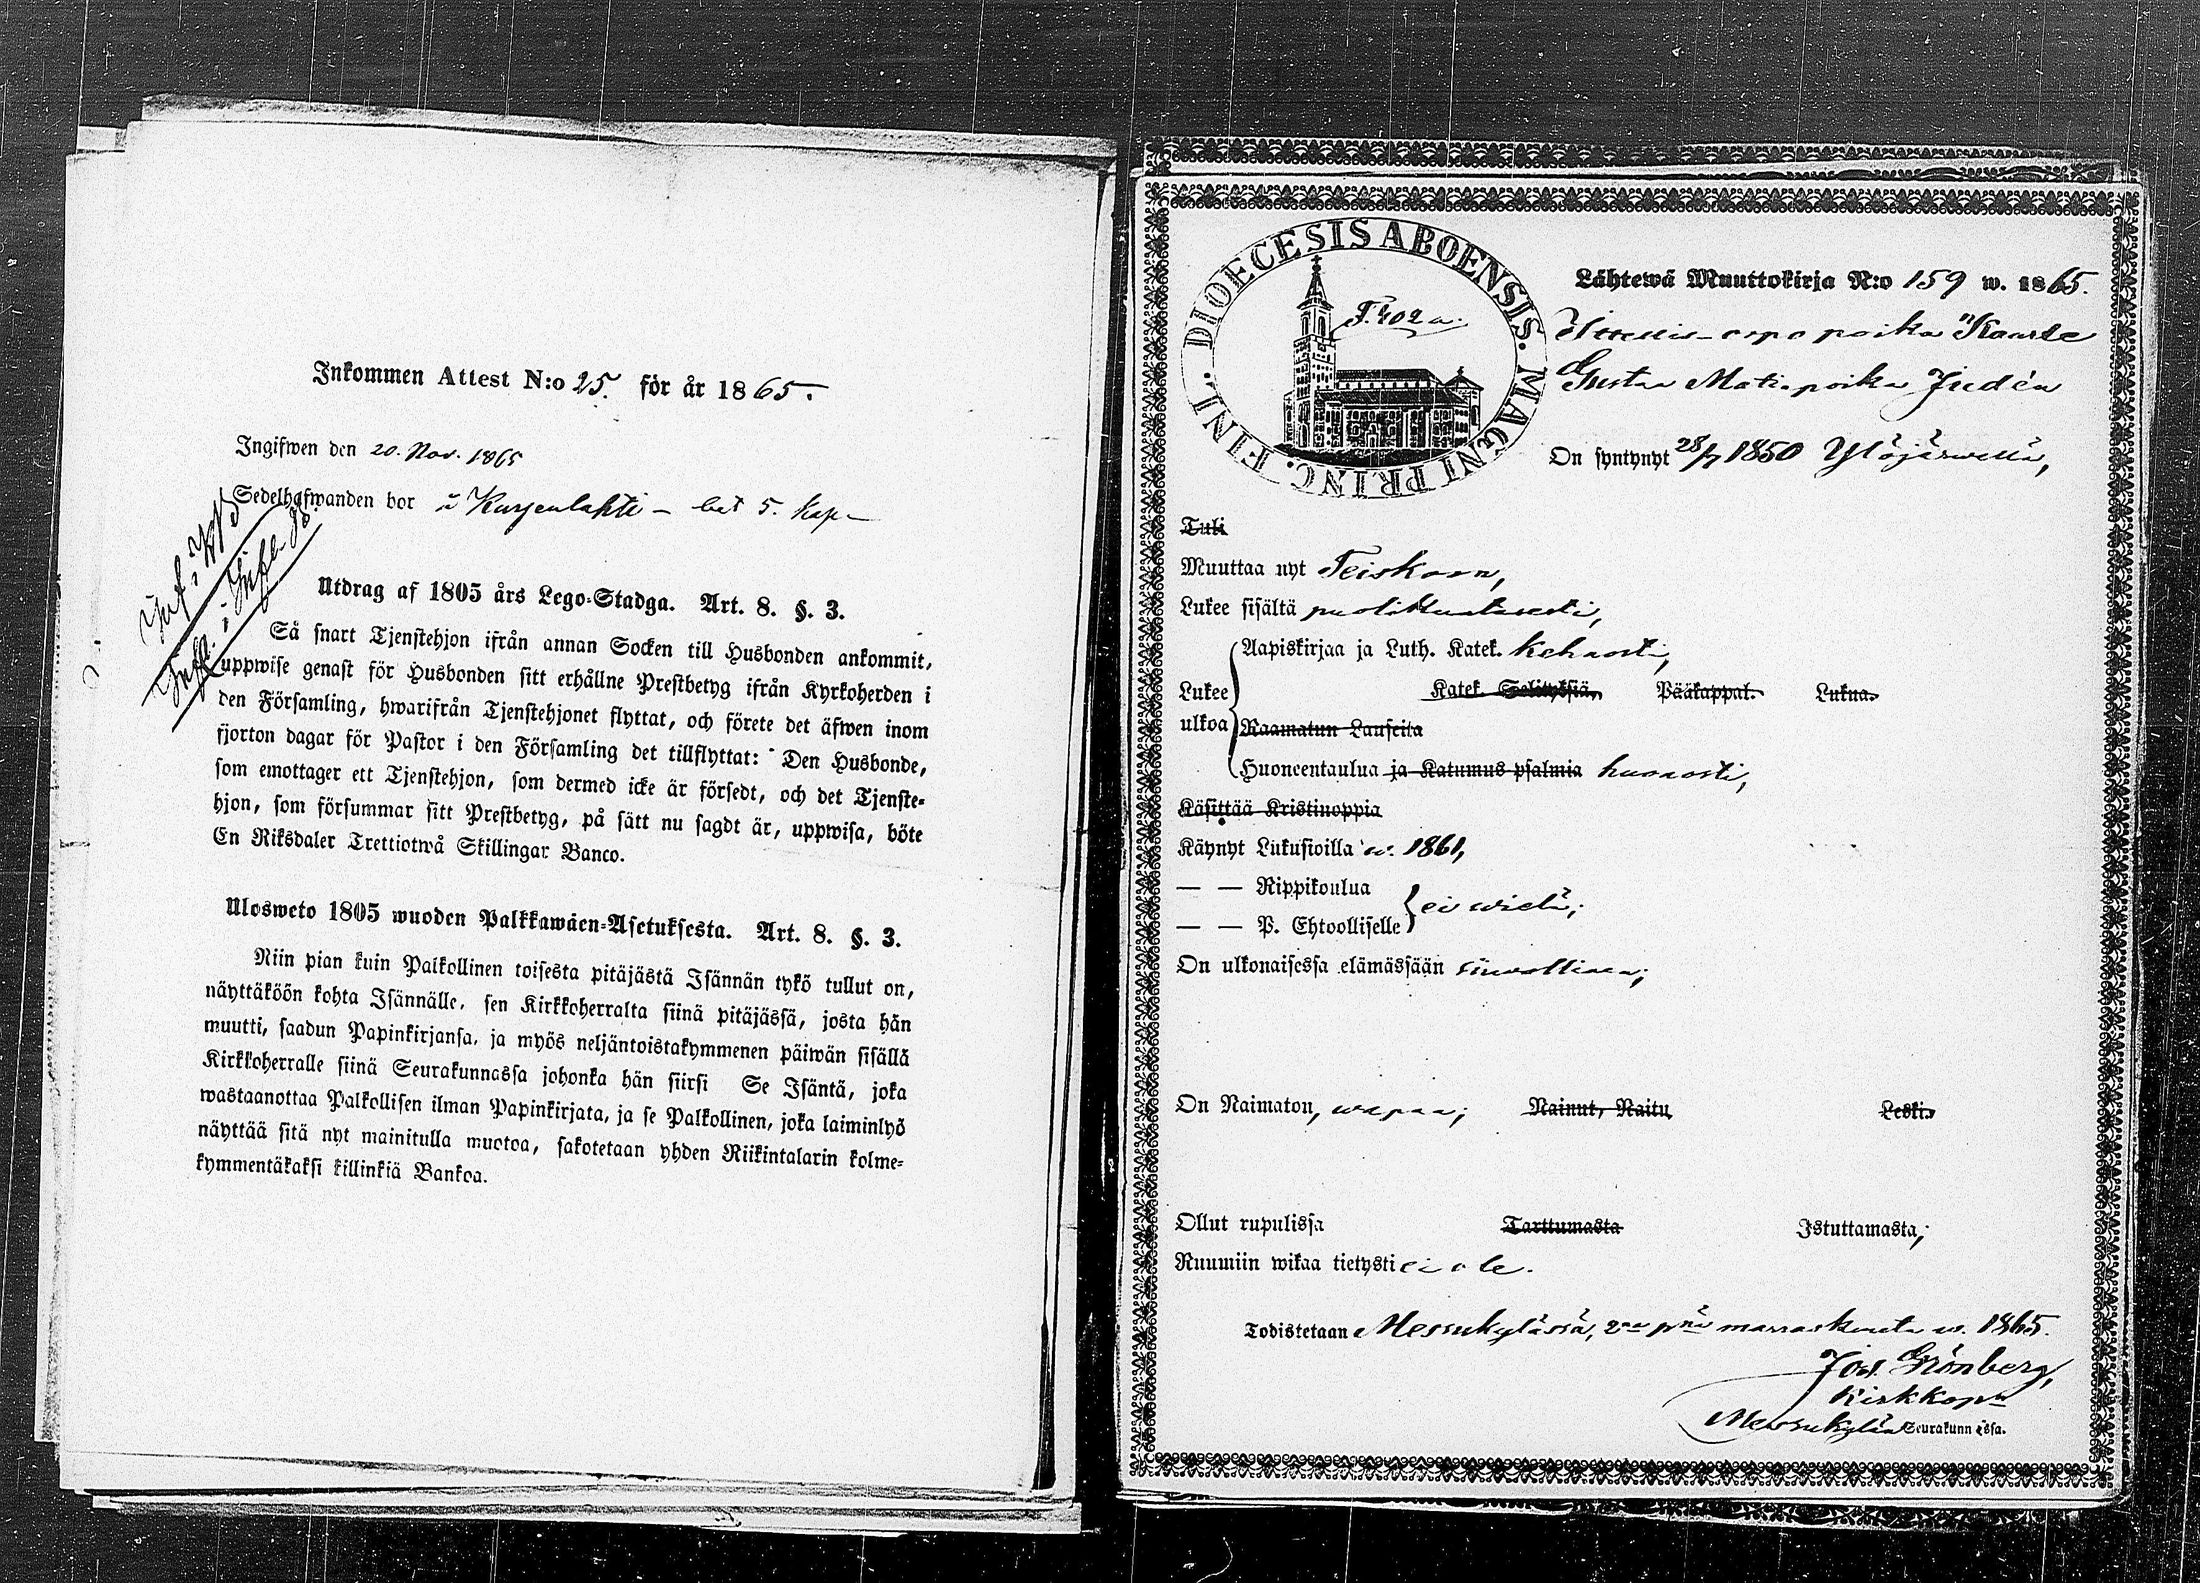 Inkommen Attest N:o 25. för år 1865.
Ingifwen den 20. Nov. 1865
Sedelhafwanden bor i Kurjenlahti – bet 5. kap –
Utdrag af 1805 års Lego-Stadga. Art. 8. §. 3.
Så snart Tjenstehjon ifrån annan Socken till Husbonden ankommit,
uppwise genast för Husbonden sitt erhållne Prestbetyg ifrån Kyrkoherden i
den Församling, hwarifrån Tjenstehjonet flyttat, och förete det äfwen inom
fjorton dagar för Pastor i den Församling det tillflyttat: Den Husbonde,
som emottager ett Tjenstehjon, som dermed icke är försedt, och det Tjenste-
hjon, som försummar sitt Prestbetyg, på sätt nu sagdt är, uppwisa, böte
En Riksdaler Trettiotwå Skillingar Banco.
Ulosweto 1805 wuoden Palkkawäen-Asetuksesta. Art. 8. §. 3.
Niin pian kuin Palkollinen toisesta pitäjästä Isännän tykö tullut on,
näyttäköön kohta Isännälle, sen Kirkkoherralta siinä pitäjässä, josta hän
muutti, saadun Papinkirjansa, ja myös neljäntoistakymmenen päiwän sisällä
Kirkkoherralle siinä Seurakunnassa johonka hän siirsi Se Isäntä, joka
wastaanottaa Palkollisen ilman Papinkirjata, ja se Palkollinen, joka laiminlyö
näyttää sitä nyt mainitulla muotoa, sakotetaan yhden Riikintalarin kolme-
kymmentäkaksi killinkiä Bankoa.
DIOECESIS ABOENSIS. MAGNI PRINC. FINL.
F. 402 a.
Lähtewä Muuttokirja N:o 159 w. 1865.
poika Kaarle
Gustaa Matinpoika Judén
On syntynyt 28/7 1850 Ylöjärwellä,
Tuli
Muuttaa nyt Teiskoon,
Lukee sisältä puolittaisesti,
Aapiskirjaa ja Luth. Katek. kehnosti,
Lukee
ulkoa
Katek. Selityksiä, Pääkappal. Lukua.
Raamatun Lauseita
Huoneentaulua ja Katumus-psalmia huonosti,
Käsittää Kristinoppia
Käynyt Lukusioilla w. 1861,
— — Rippikoulua
— — P. Ehtoolliselle
ei wielä;
On ulkonaisessa elämässään siiwollinen;
On Naimaton, wapaa; Nainut, Naitu Leski.
Ollut rupulissa Tarttumasta Istuttamasta;
Ruumiin wikaa tietysti ei ole.
Todistetaan Messukylässä, 2na pnä marraskuuta w. 1865.
Jos. Grönberg,
Kirkkopa
Messukylän Seurakunnassa.